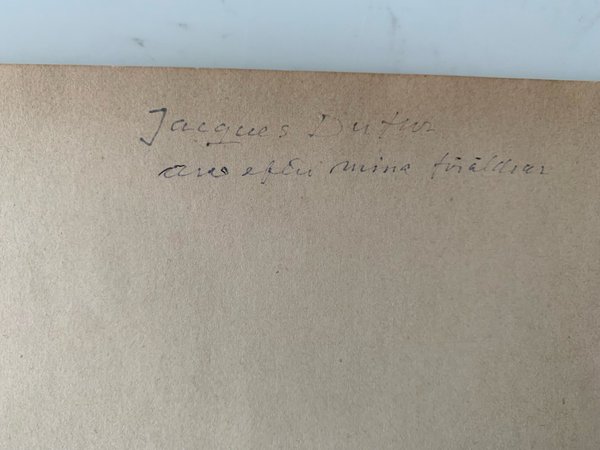 Jacques Dufur
arv efter mina föräldrar